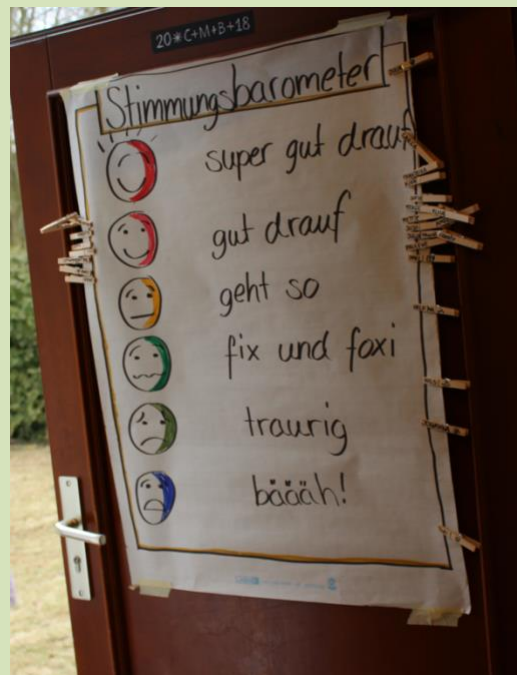 20*C+M+B+18
Stimmungsbarometer
super gut drauf
gut drauf
geht so
fix und foxi
traurig
bäääh!